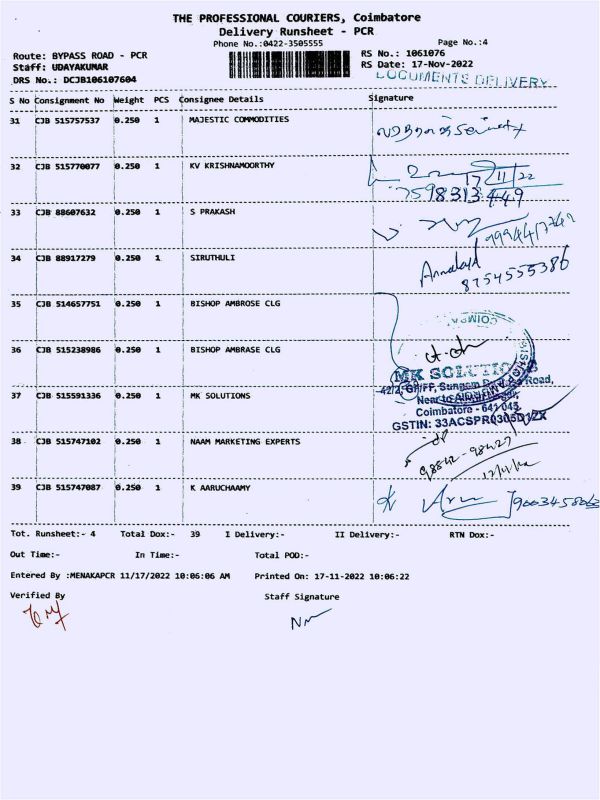 THE PROFESSIONAL COURIERS, Coimbatore
Delivery Runsheet - PCR
Phone No.:0422-3505555 Page No.:4
Route: BYPASS ROAD - PCR RS No.: 1061076
Staff: UDAYAKUMAR RS Date: 17-Nov-2022
DRS No.: DCJB106107604 DOCUMENTS DELIVERY
S No Consignment No Weight PCS Consignee Details Signature
31 CJB 515757537 0.250 1 MAJESTIC COMMODITIES
32 CJB 515770077 0.250 1 KV KRISHNAMOORTHY 17/11/22
7598313449
33 CJB 88607632 0.250 1 S PRAKASH
34 CJB 88917279 0.250 1 SIRUTHULI
8754555386
35 CJB 514657751 0.250 1 BISHOP AMBROSE CLG
36 CJB 515238986 0.250 1 BISHOP AMBRASE CLG
MK SOLUTIONS
37 CJB 515591336 0.250 1 MK SOLUTIONS
Coimbatore - 641 045.
GSTIN: 33ACSPR0305D1ZX
38 CJB 515747102 0.250 1 NAAM MARKETING EXPERTS
39 CJB 515747087 0.250 1 K AARUCHAAMY
Tot. Runsheet:- 4 Total Dox:- 39 I Delivery:- II Delivery:- RTN Dox:-
Out Time:- In Time:- Total POD:-
Entered By :MENAKAPCR 11/17/2022 10:06:06 AM Printed On: 17-11-2022 10:06:22
Verified By Staff Signature